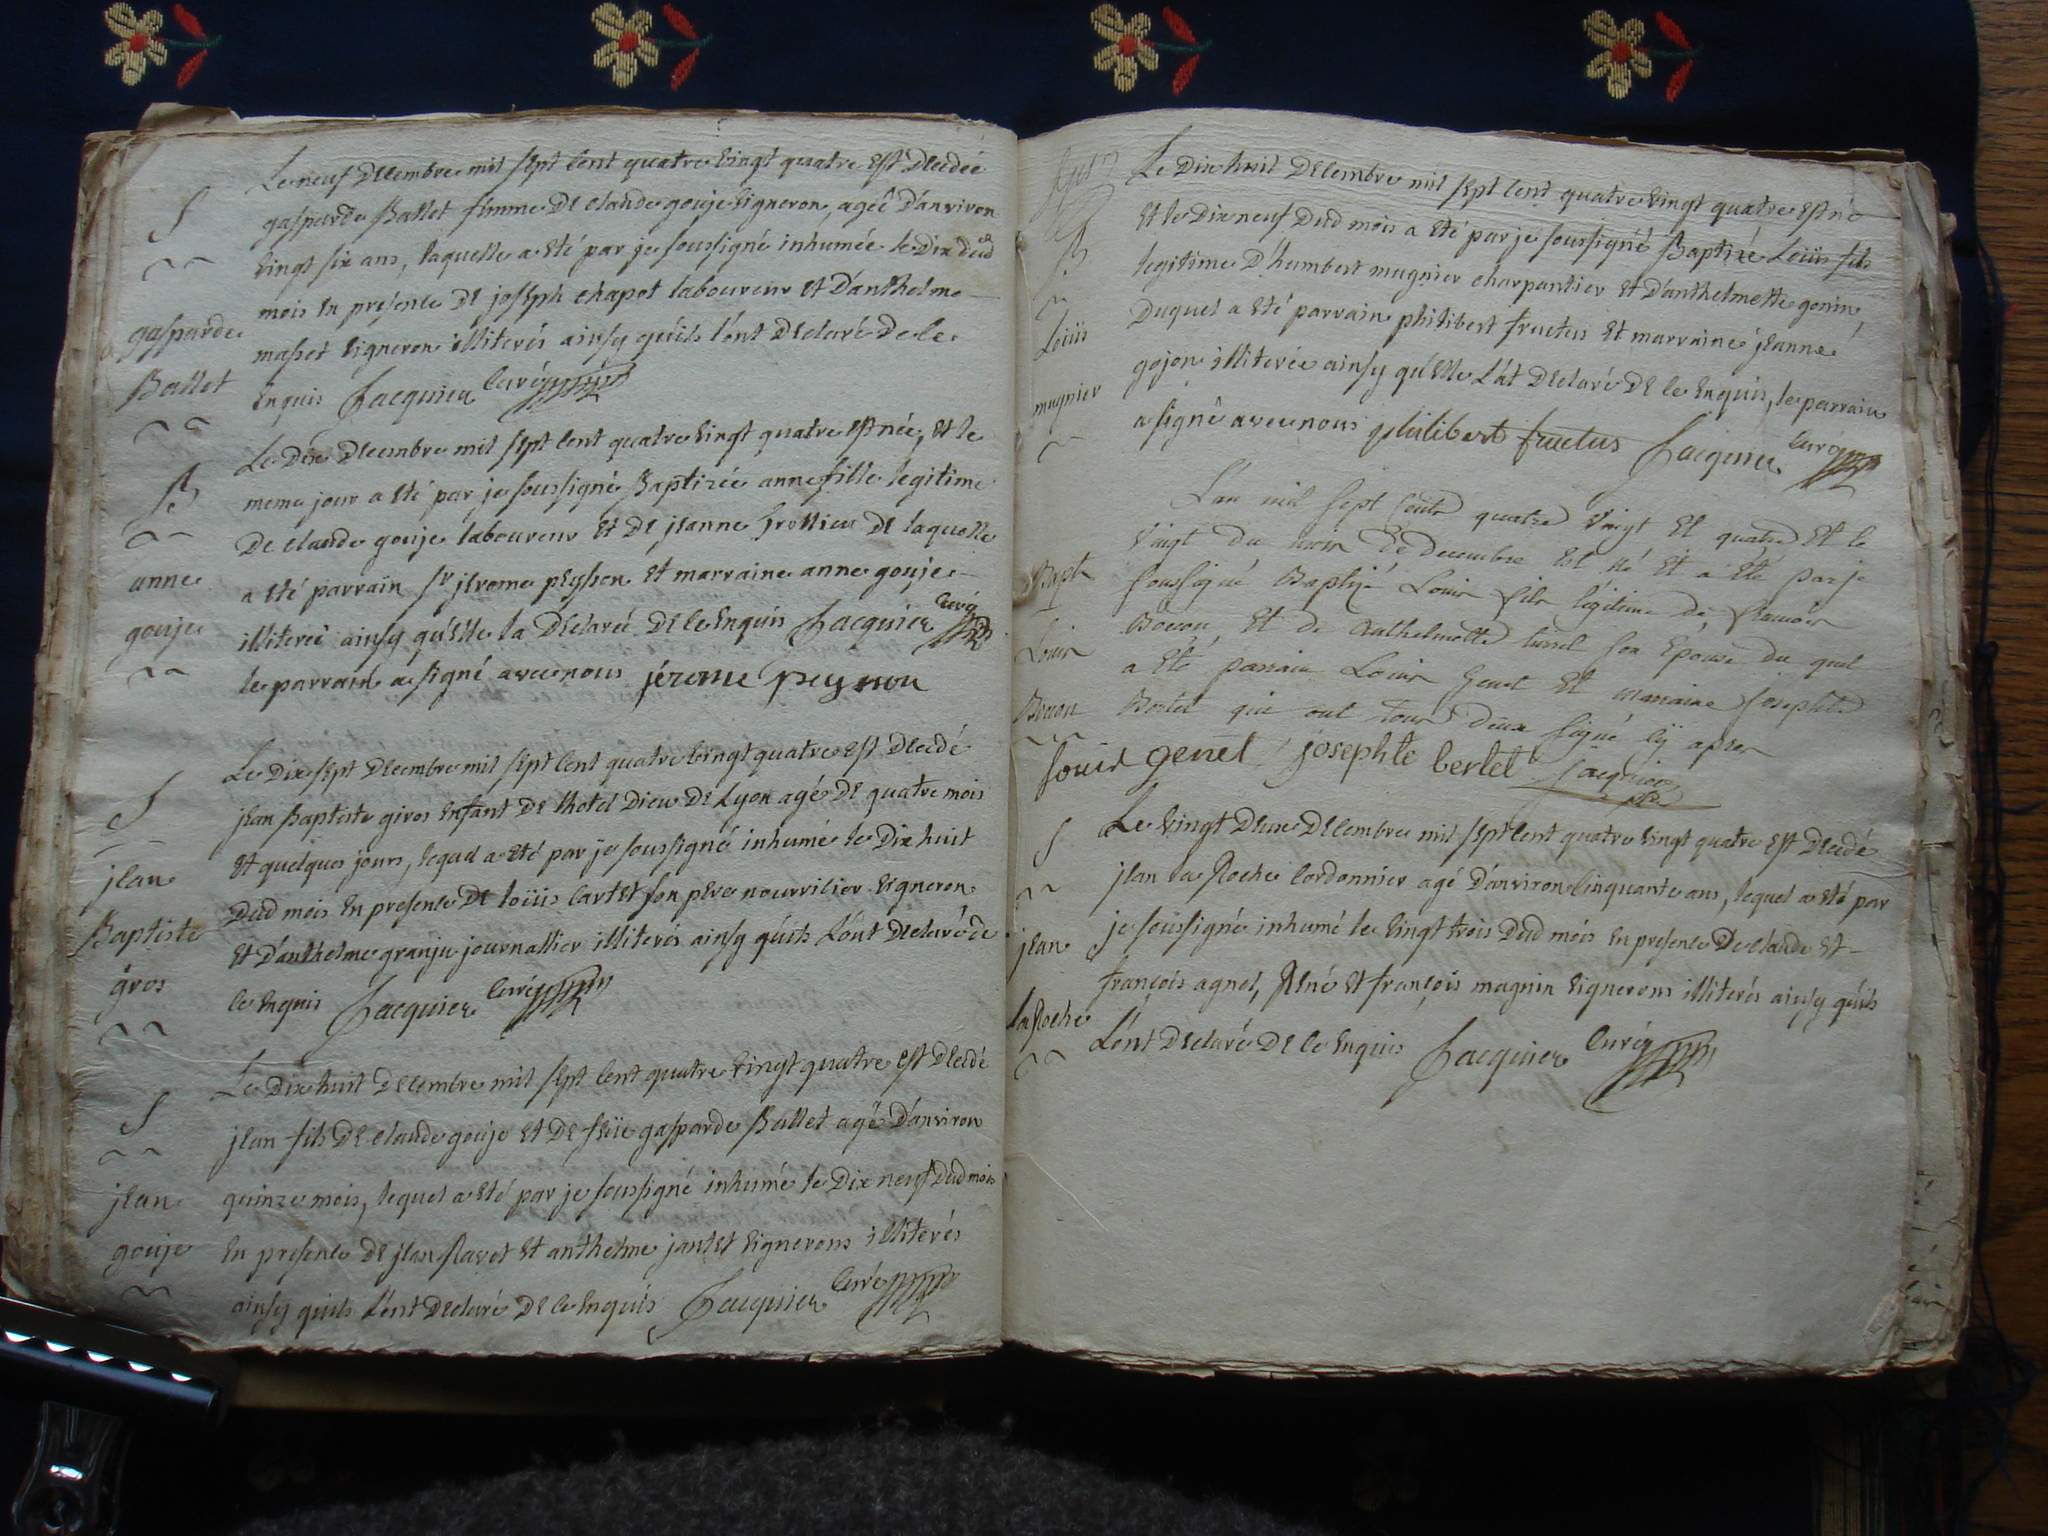 S
gasparde
Ballet
Le neuf Decembre mil sept cent quatre vingt quatre est Decedée
gasparde Ballet femme De claude gouje vigneron, agée D'anviron
vingt six ans, laquelle a eté par je soussigné inhumée le Dix dud
mois en presence De joseph chapot laboureur et D'anthelme
masset vigneron illiterés ainsy qu'ils l'ont Declaré De ce
enquis Jacquier Curé
B
anne
gouje
Le Dix Decembre mil sept cent quatre vingt quatre est née, et le
meme jour a eté par je soussigné Baptizée anne fille legitime
De claude gouje laboureur et De jeanne De laquelle
a eté parrain Sr jerome peysson et marraine anne gouje
illiterée ainsy qu'elle la Declaré De ce enquis Jacquier Curé
le parrain a signé avec nous jérome peysson
S
jean
Baptiste
gros
Le Dix sept Decembre mil sept cent quatre vingt quatre est Decedé
jean Baptiste gros enfant De l'hotel Dieu De Lyon agé De quatre mois
et quelques jours, lequel a eté par je soussigné inhumé le Dix huit
Dud mois en presence De loüis cartet son pere nourricier vigneron
et D'anthelme granju journallier illiterés ainsy qu'ils L'ont Declaré de
ce enquis Jacquier Curé
S
jean
gouje
Le Dix huit Decembre mil sept cent quatre vingt quatre est Decedé
jean fils De claude gouje et De feüe gasparde Ballet agé D'anviron
quinze mois, lequel a eté par je soussigné inhumé le Dix neuf Dud mois
en presence De jean Ravet et anthelme jantet vignerons illiterés
ainsy qu'ils L'ont Declaré De ce enquis Jacquier Curé
B
Loüis
mugnier
Le Dix huit Decembre mil sept cent quatre vingt quatre est né
et le Dix neuf Dud mois a eté par je soussigné Baptizé Loüis fils
legitime D'humbert mugnier charpantier et D'anthelmette gonin,
Duquel a eté parrain philibert fructus et marraine jeanne
gojon illiterée ainsy qu'elle L'at Declaré De ce enquis, le parrain
a signé avec nous philibert fructus Jacquier Curé
Bapt
Louis
Bouon
L'an mil sept cents quatre vingt et quatre et le
vingt du mois de decembre est né et a eté par je
soussigné Baptizé Louis fils légitime de
et de Anthelmette son Epouse du quel
a eté parrain Louis Genet et marraine Josephte
Bertet qui ont tous deux signé cy apres
louis genet josephte bertet Jacquier
ptre
S
jean
la Roche
Le vingt Deux Decembre mil sept cent quatre vingt quatre est Decedé
jean la Roche cordonnier agé D'anviron cinquante ans, lequel a eté par
je soussigné inhumé le vingt trois Dud mois en presence De claude et
françois agnel, René et françois magnin vignerons illiterés ainsy qu'ils
L'ont Declaré De ce enquis Jacquier Curé